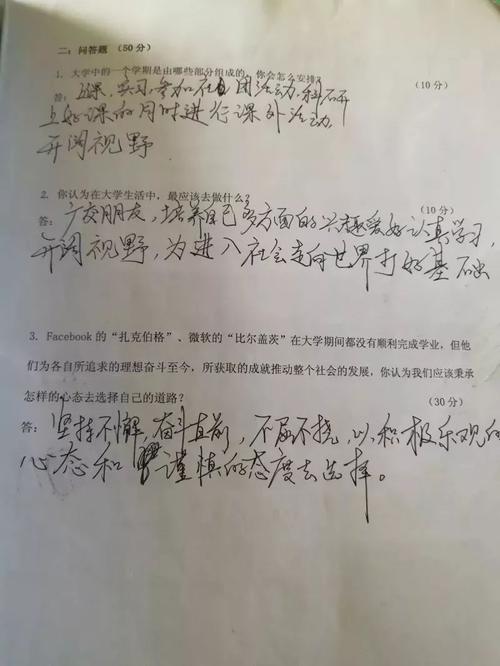 二：问答题（50分）
1. 大学中的一个学期是由哪些部分组成的，你会怎么安排？（10分）
答：上课、实习、参加社团活动、科研
上好课的同时进行课外活动，
开阔视野
2. 你认为在大学生活中，最应该去做什么？（10分）
答：广交朋友，培养自己多方面的兴趣爱好认真学习，
开阔视野，为进入社会走向世界打好基础
3. Facebook的“扎克伯格”、微软的“比尔盖茨”在大学期间都没有顺利完成学业，但他
们为各自所追求的理想奋斗至今，所获取的成就推动整个社会的发展，你认为我们应该秉承
怎样的心态去选择自己的道路？（30分）
答：坚持不懈，奋斗直前，不屈不挠，以积极乐观的
心态和谨慎的态度去选择。